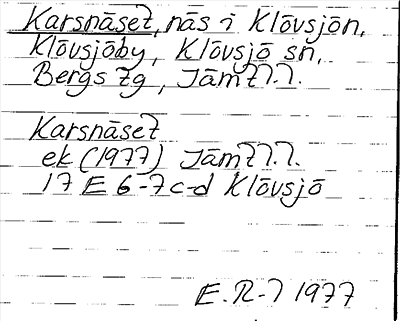 Karsnäset, näs i Klövsjön,
Klövsjöby, Klövsjö sn,
Bergs tg, Jämtl.l.
Karsnäset
ek (1977) Jämtl.l.
17 E 6-7 c-d Klövsjö
E.R-l 1977